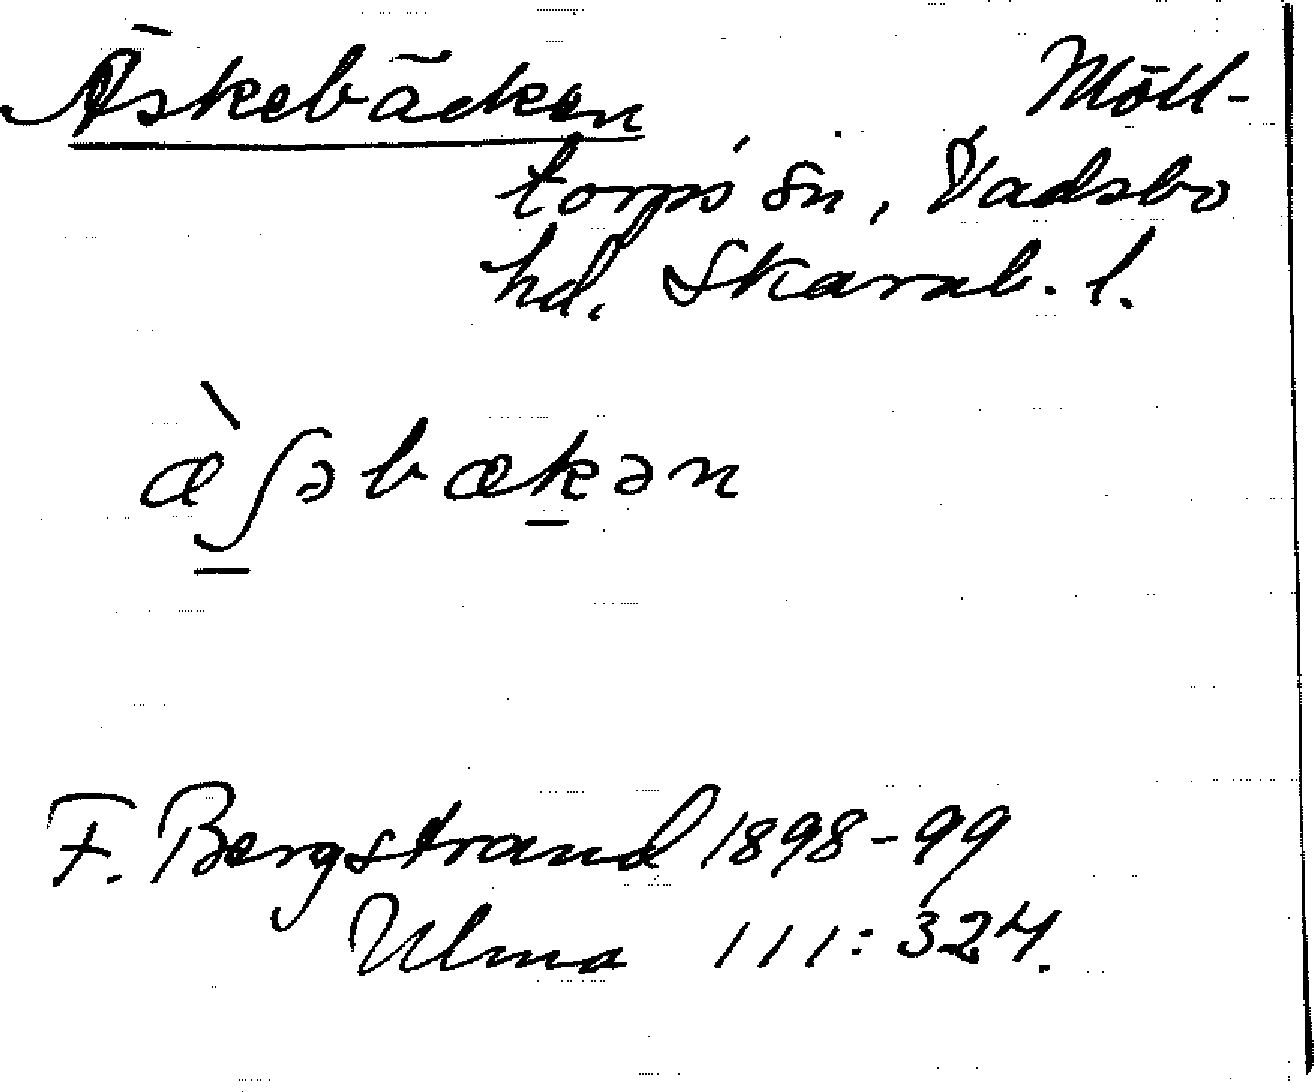 Äskebäcken Möll-
torps sn, Vadsbo
hd. Skarab. l.
æ̀ʃəbækən
F. Bergstrand 1898-99
Ulma 111:324.